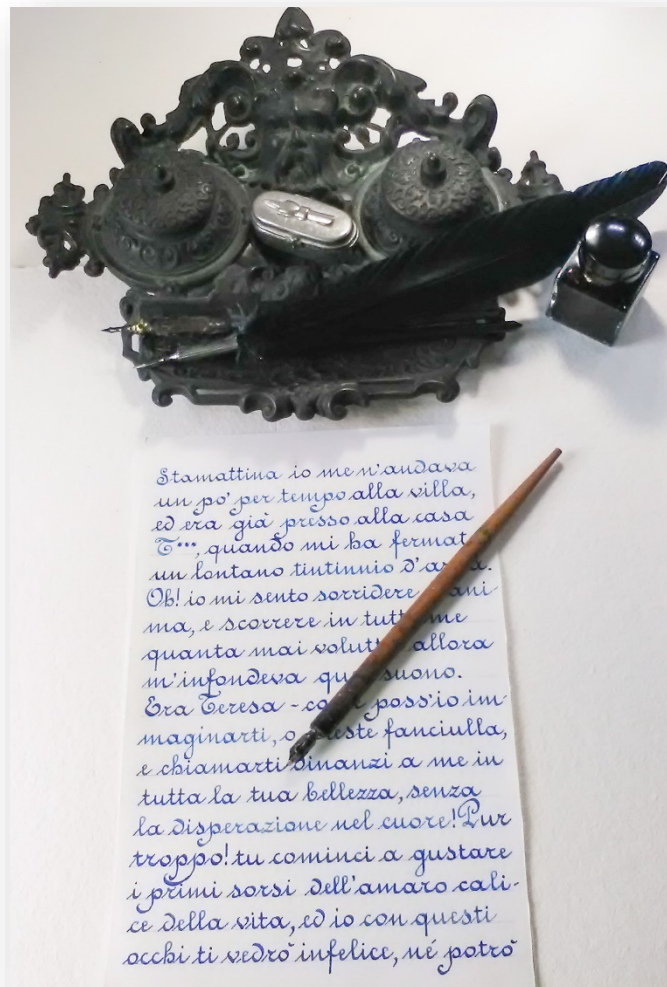 Stamattina io me n'andava
un po' per tempo alla villa,
ed era già presso alla casa
T***, quando mi ha fermat
un lontano tintinnio d'a
Oh! io mi sento sorridere ani-
ma, e scorrere in tutt me
quanta mai volutt allora
m'infondeva qu suono.
Era Teresa - co poss'io im-
maginarti, o este fanciulla,
e chiamarti dinanzi a me in
tutta la tua bellezza, senza
la disperazione nel cuore! Pur
troppo! tu cominci a gustare
i primi sorsi dell'amaro cali-
ce della vita, ed io con questi
occhi ti vedrò infelice, né potrò